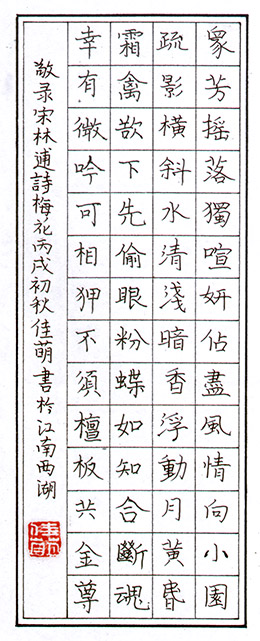 衆芳摇落獨喧妍佔盡風情向小園
疏影横斜水清淺暗香浮動月黄昏
霜禽欲下先偷眼粉蝶如知合斷魂
幸有微吟可相狎不須檀板共金尊
敬录宋林逋詩梅花丙戌初秋佳萌書於江南西湖